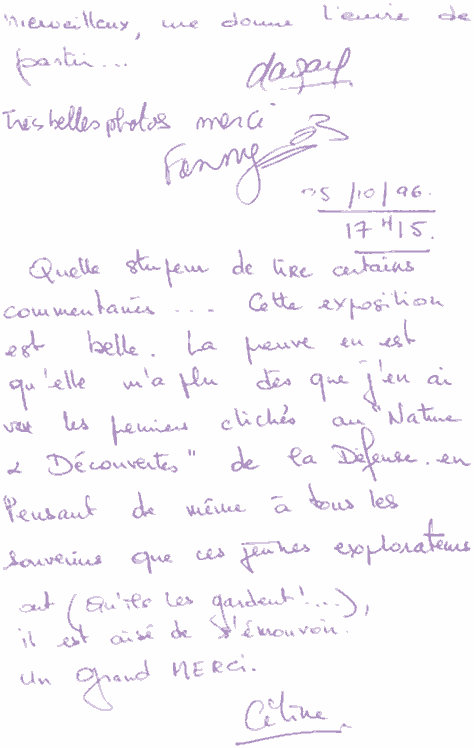 Merveilleux, me donne l'envie de
partir...
Très belles photos merci
Fanny
05/10/96.
17H15.
Quelle stupeur de lire certains
commentaires .... Cette exposition
est belle. La preuve en est
qu'elle m'a plu dès que j'en ai
vu les premiers clichés au "Nature
& Découvertes" de la Défense. en
Pensant de même à tous les
souvenirs que ces jeunes explorateurs
ont (Qu'ils les gardent!...),
il est aisé de s'émouvoir.
Un Grand MERCI.
Céline.